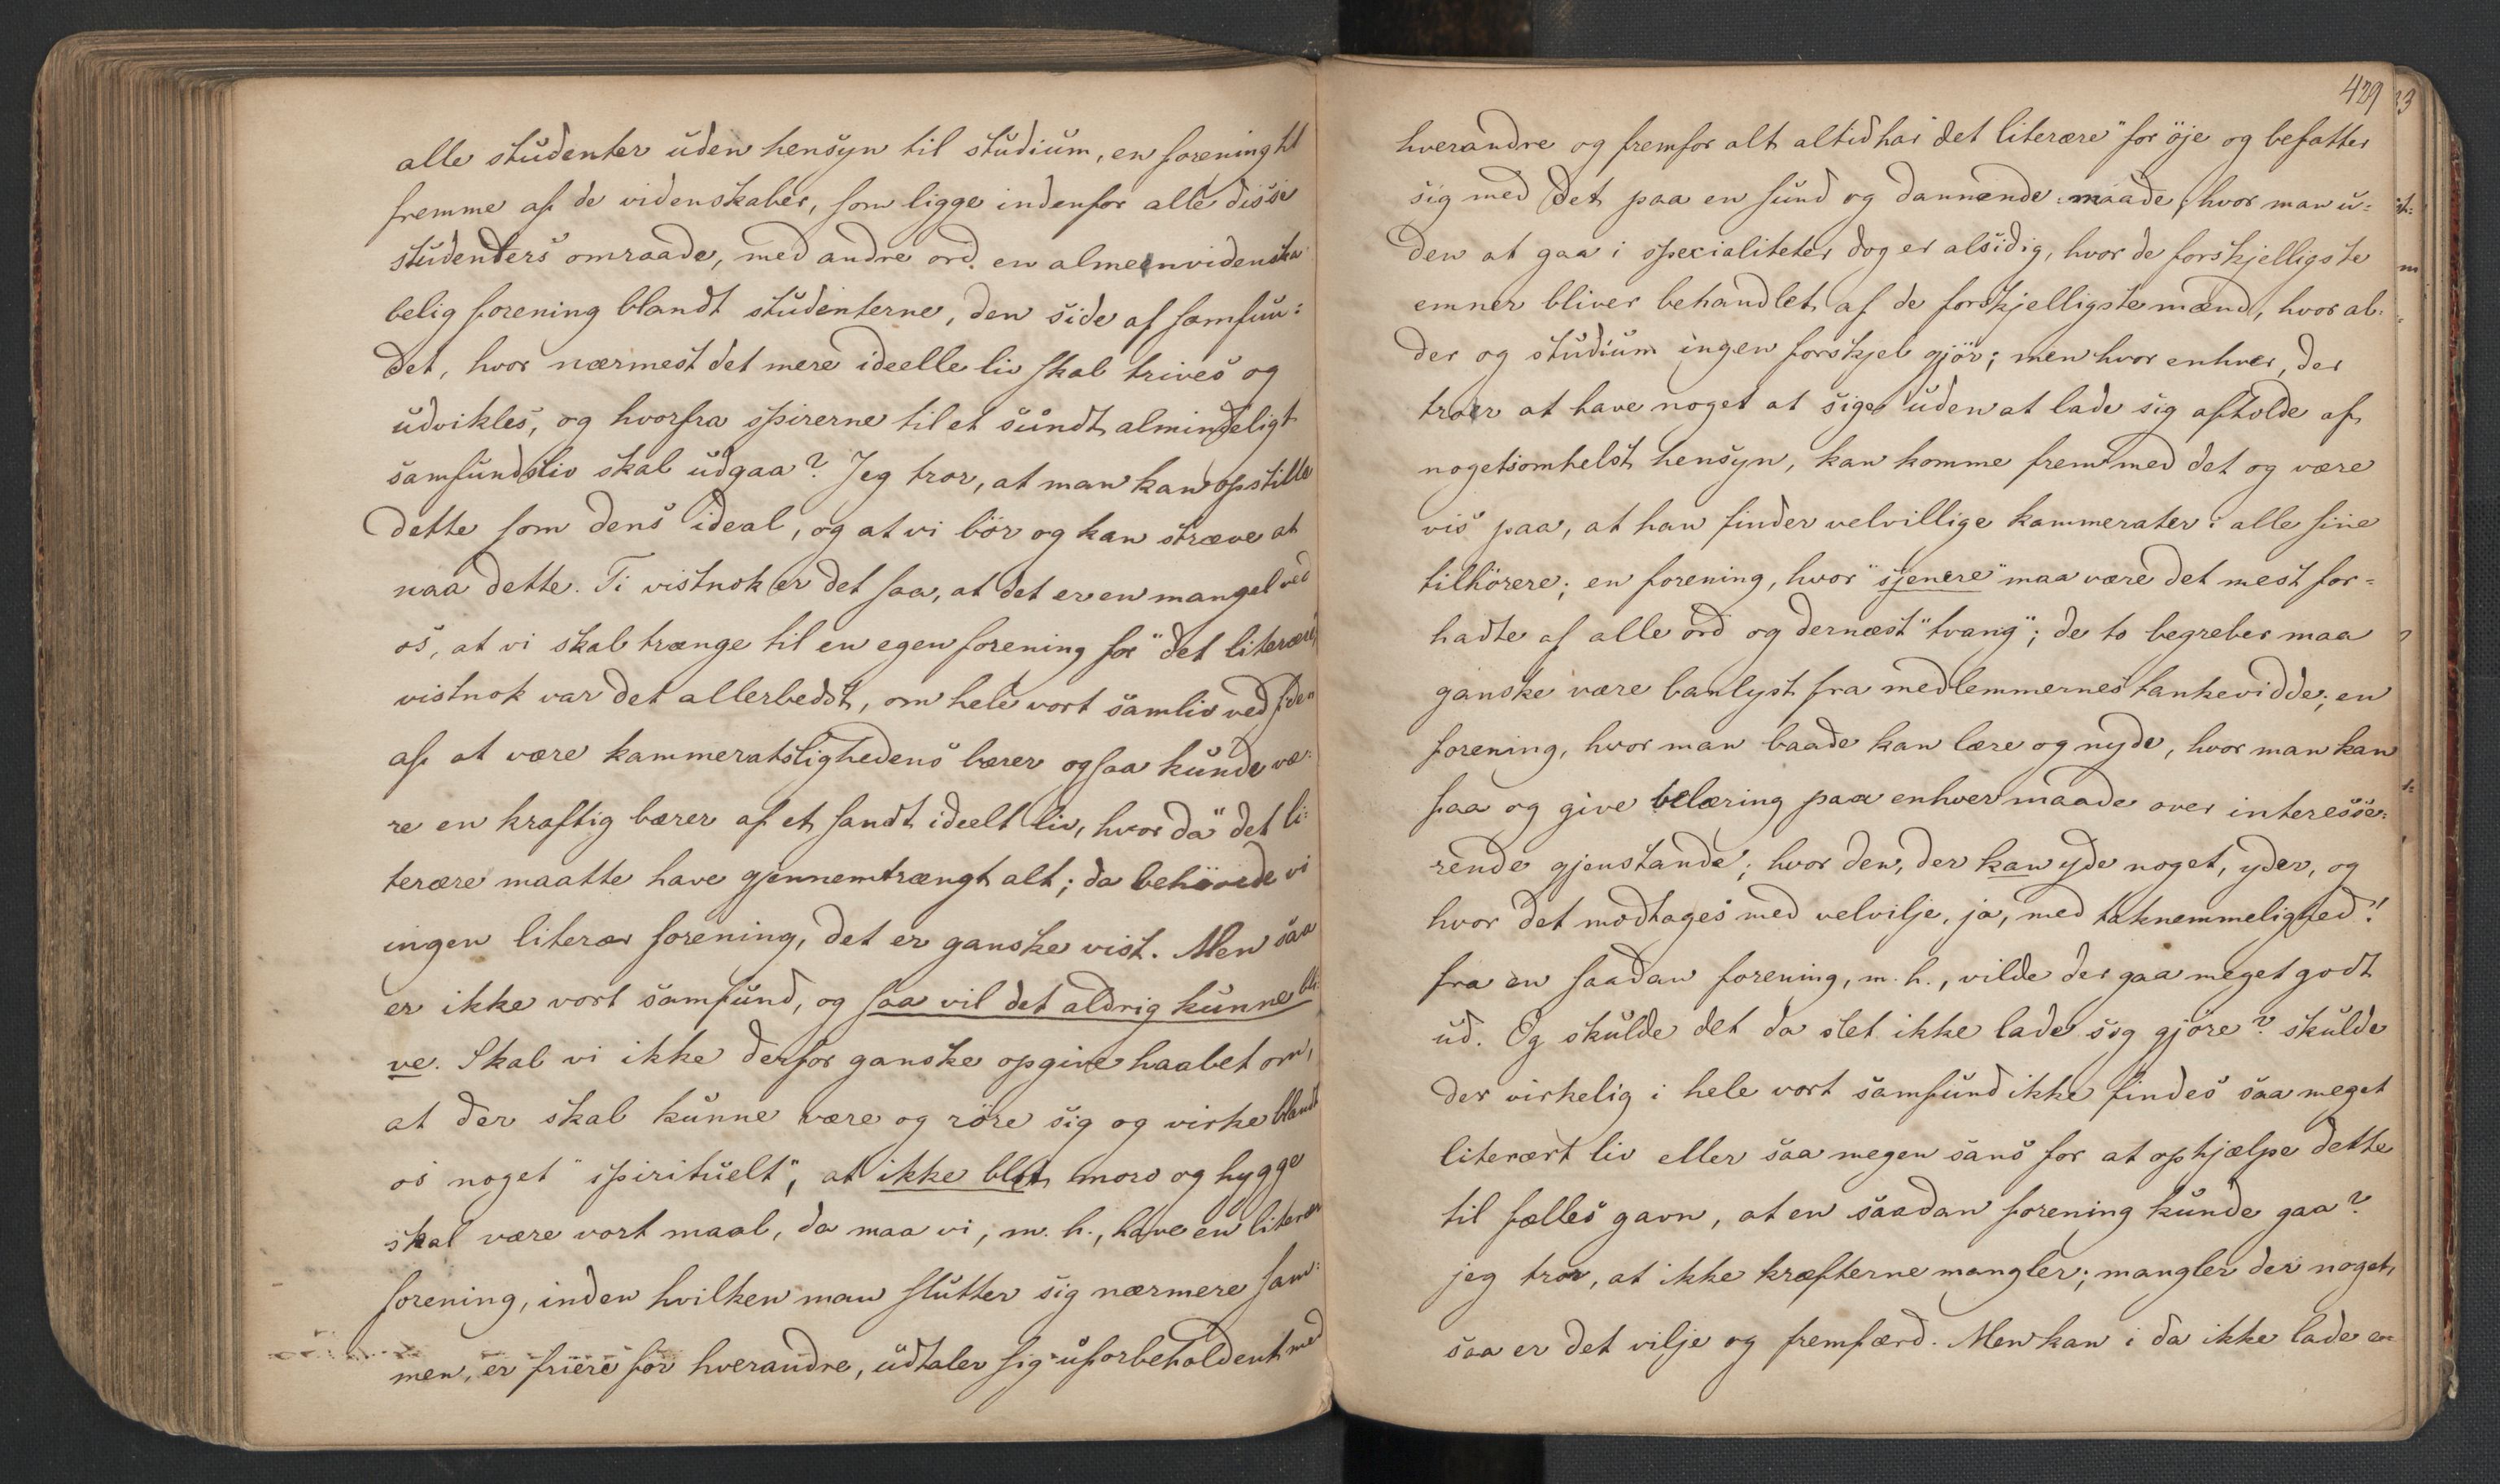 alle studenter uden hensyn til studium, en forening til
fremme af de videnskaber, som ligge indenfor alle disse
studenters omraade, med andre ord. en almeenvidenska
belig forening blandt studenterne, den side af samfun:
det, hvor nærmest det mere ideelle liv skal trives og
udvikles, og hvorfra spirerne til et sundt almindeligt
samfundsliv skal udgaa? Jeg tror, at man kan opstille
dette som dens ideal, og at vi bör og kan stræve at
naa dette. Ti vistnok er det saa, at det er en mangel ved
os, at vi skal trænge til en egen forening for "det literære",
vistnok var det allerbedst, om hele vort samliv ved siden
af at være kammeratslighedens bærer ogsaa kunde væ:
re en kraftig bærer af et sandt ideelt liv, hvor da "det li:
terære maatte have gjennemtrængt alt; da behövede vi
ingen literær forening, det er ganske vist. Men saa
er ikke vort samfund, og saa vil det aldrig kunne bli:
ve. Skal vi ikke derfor ganske opgive haabet om,
at der skal kunne være og röre sig og virke blandt
os noget "spirituelt", at ikke blot moro og hygge
skal være vort maal, da maa vi, m. h., have en literær
forening, inden hvilken man slutter sig nærmere sam:
men, er friere for hverandre, udtaler sig uforbeholdent med
429
hverandre og fremfor alt altid har "det literære" for öje og befatter
sig med det paa en sund og dannende maade, hvor man u:
den at gaa i specialiteter dog er alsidig, hvor de forskjelligste
emner bliver behandlet af de forskjelligste mænd, hvor al:
der og studium ingen forskjel gjör; men hvor enhver, der
troer at have noget at sige uden at lade sig afholde af
nogetsomhelst hensyn, kan komme frem med det og være
vis paa, at han finder velvillige kammerater i alle sine
tilhörere; en forening, hvor "sjenere" maa være det mest for-
hadte af alle ord og dernæst "tvang"; de to begreber maa
ganske være banlyst fra medlemmernes tankevidde; en
forening, hvor man baade kan lære og nyde, hvor man kan
faa og give belæring paa enhver maade over interesse:
rende gjenstande; hvor den, der kan yde noget, yder, og
hvor det modtages med velvilje, ja, med taknemmelighed!
fra en saadan forening, m. h., vilde der gaa meget godt
ud. Og skulde det da slet ikke lade sig gjöre? skulde
der virkelig i hele vort samfund ikke findes saa meget
literært liv eller saa megen sans for at ophjælpe dette
til fælles gavn, at en saadan forening kunde gaa?
jeg tror, at ikke kræfterne mangler; mangler der noget,
saa er det vilje og fremfærd. Men kan i da ikke lade en